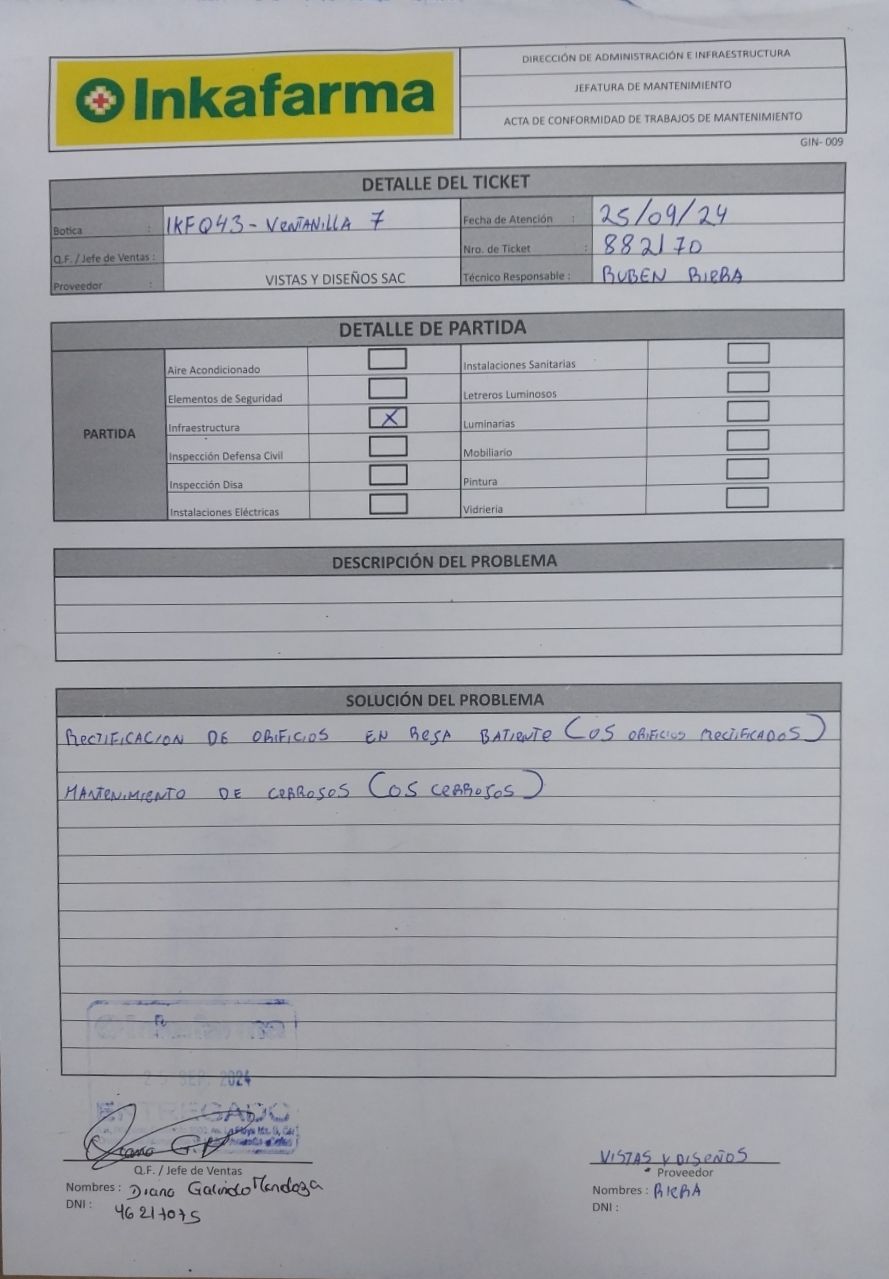 Inkafarma
DIRECCIÓN DE ADMINISTRACIÓN E INFRAESTRUCTURA
JEFATURA DE MANTENIMIENTO
ACTA DE CONFORMIDAD DE TRABAJOS DE MANTENIMIENTO
GIN- 009
DETALLE DEL TICKET
Botica : IKFQ43 - VENTANILLA 7
Fecha de Atención : 25/09/24
Q.F. / Jefe de Ventas :
Nro. de Ticket : 882170
Proveedor : VISTAS Y DISEÑOS SAC
Técnico Responsable : RUBEN RIERA
DETALLE DE PARTIDA
PARTIDA
Aire Acondicionado
Instalaciones Sanitarias
Elementos de Seguridad
Letreros Luminosos
Infraestructura X
Luminarias
Inspección Defensa Civil
Mobiliario
Inspección Disa
Pintura
Instalaciones Eléctricas
Vidrieria
DESCRIPCIÓN DEL PROBLEMA
SOLUCIÓN DEL PROBLEMA
RECTIFICACION DE ORIFICIOS EN REJA BATIENTE (05 ORIFICIOS RECTIFICADOS)
MANTENIMIENTO DE CERROJOS (05 CERROJOS)
Inkafarma
25 SEP. 2024
ENTREGADO
Diana G.
Q.F. / Jefe de Ventas
Nombres : Diana Galindo Mendoza
DNI : 46217075
VISTAS Y DISEÑOS
Proveedor
Nombres : RIERA
DNI :